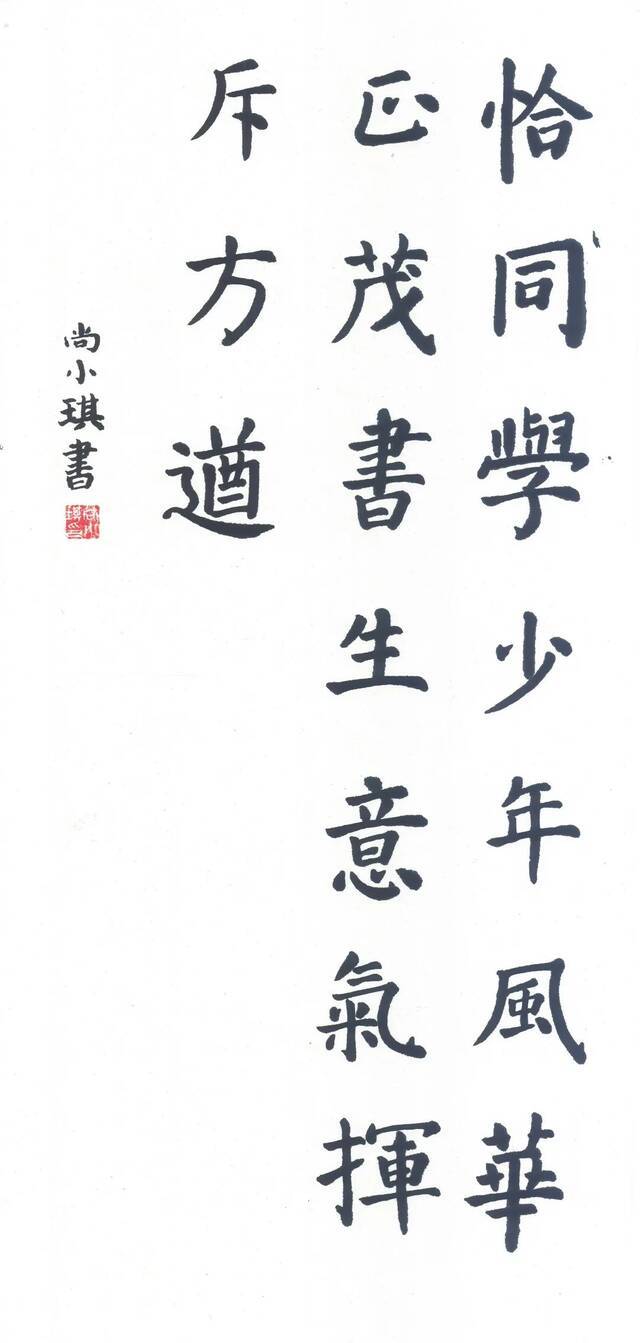 恰同學少年風華
正茂書生意氣揮
斥方遒
尚小琪書
尚小琪印